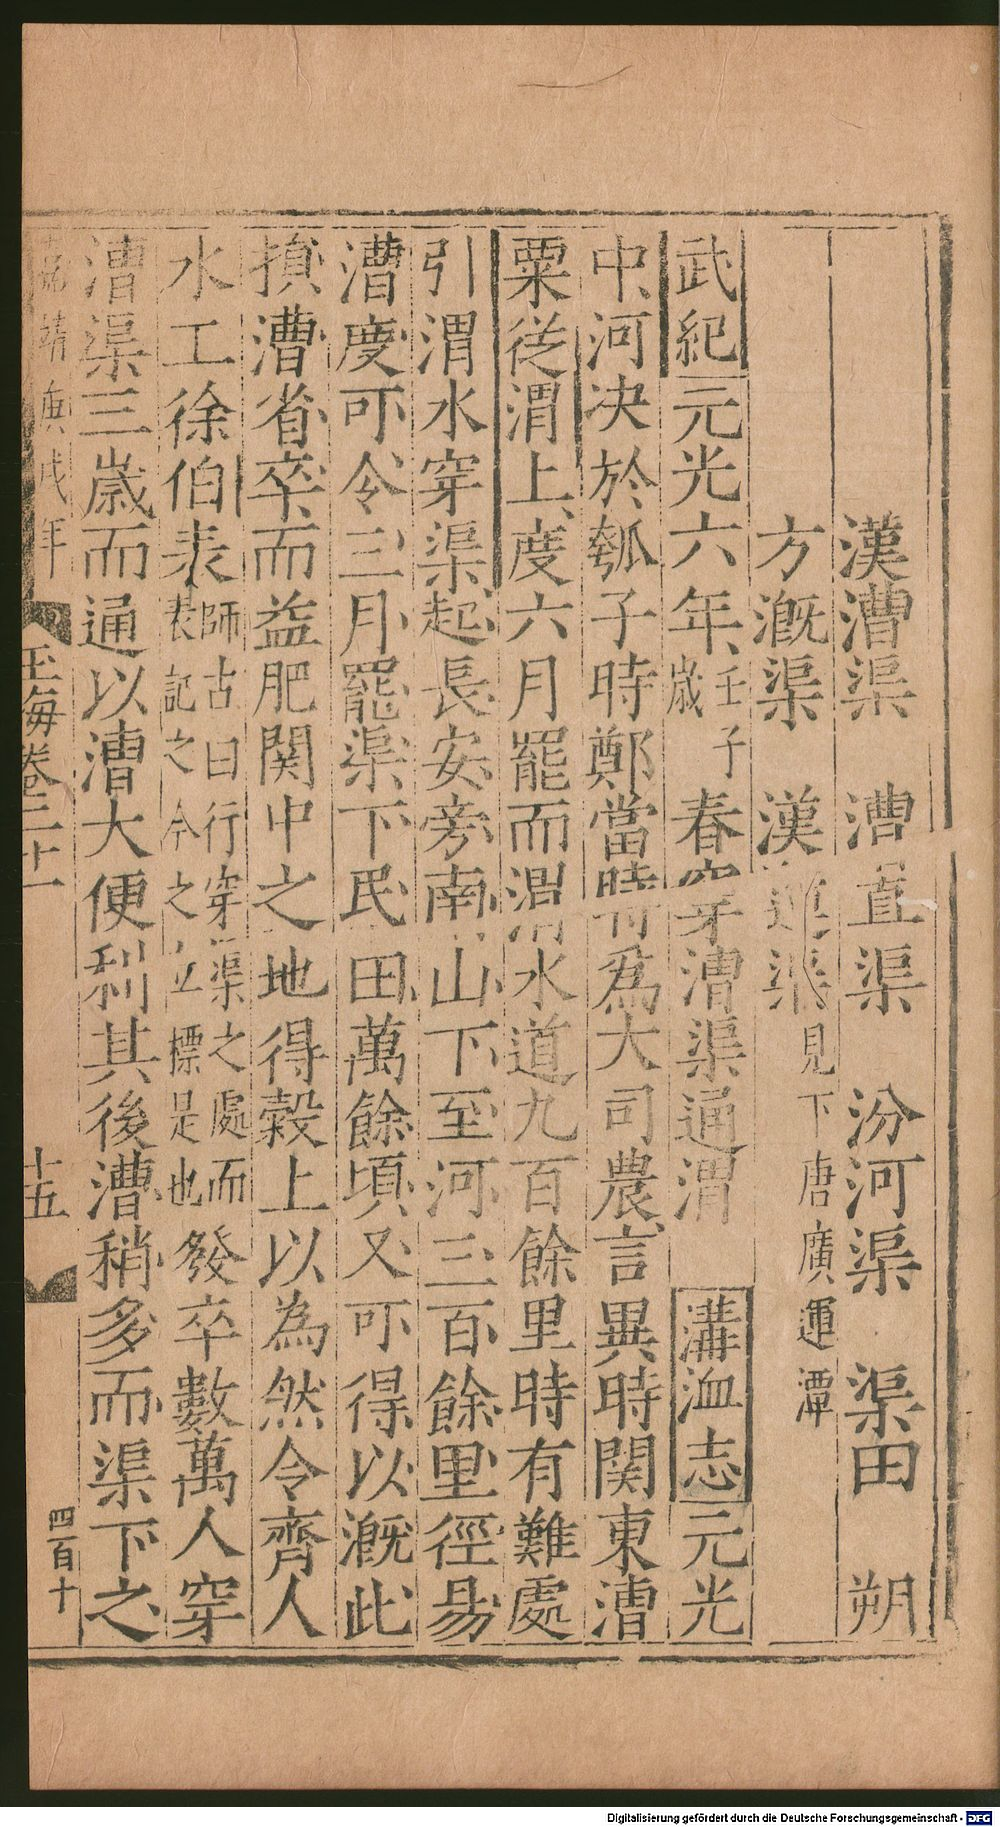 漢漕渠　漕直渠　汾河渠　渠田　朔
方溉渠　漢漕渠見下唐廣運潭
武紀元光六年壬子歲春穿漕渠通渭　溝洫志元光
中河决於瓠子時鄭當時爲大司農言異時関東漕
粟從渭上度六月罷而渭水道九百餘里時有難處
引渭水穿渠起長安旁南山下至河三百餘里徑易
漕度可令三月罷渠下民田萬餘頃又可得以溉此
損漕省卒而益肥関中之地得穀上以為然令齊人
水工徐伯表師古曰行穿渠之處而表記之今之立標是也發卒數萬人穿
漕渠三歲而通以漕大便利其後漕稍多而渠下之
嘉靖庚戌年　玉海卷二十一　十五　四百十
Digitalisierung gefördert durch die Deutsche Forschungsgemeinschaft - DFG